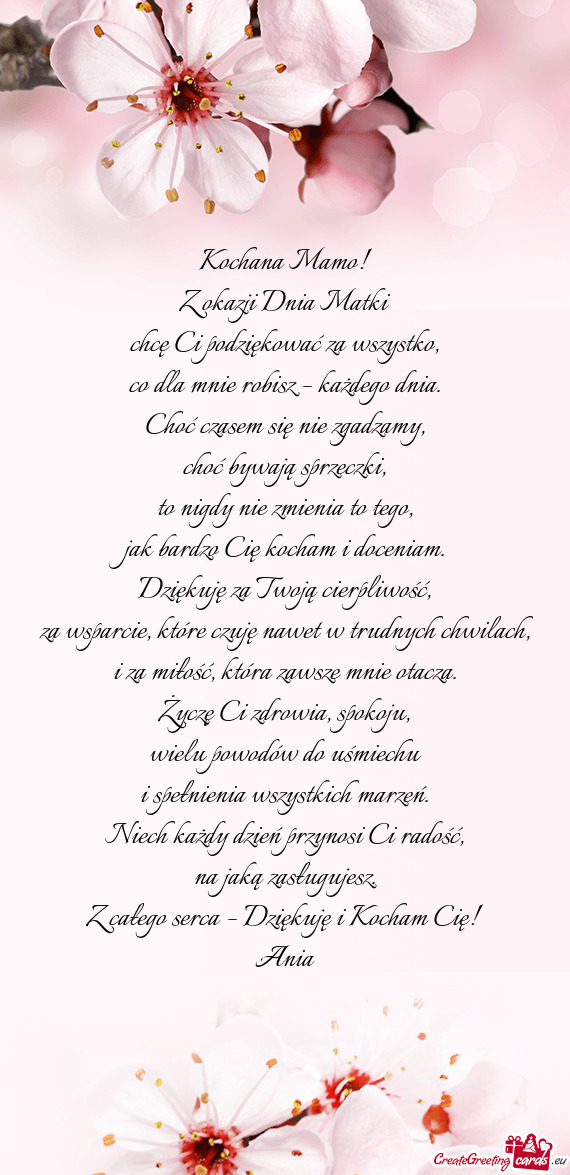 Kochana Mamo!
Z okazji Dnia Matki
chcę Ci podziękować za wszystko,
co dla mnie robisz – każdego dnia.
Choć czasem się nie zgadzamy,
choć bywają sprzeczki,
to nigdy nie zmienia to tego,
jak bardzo Cię kocham i doceniam.
Dziękuję za Twoją cierpliwość,
za wsparcie, które czuję nawet w trudnych chwilach,
i za miłość, która zawsze mnie otacza.
Życzę Ci zdrowia, spokoju,
wielu powodów do uśmiechu
i spełnienia wszystkich marzeń.
Niech każdy dzień przynosi Ci radość,
na jaką zasługujesz.
Z całego serca – Dziękuję i Kocham Cię!
Ania
CreateGreeting cards .eu